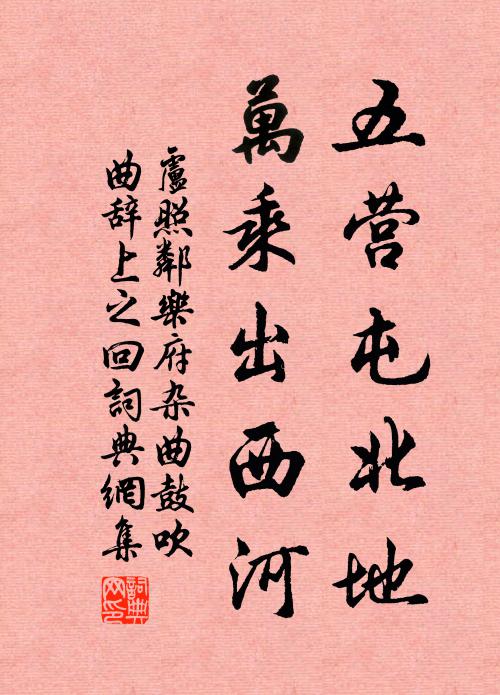 五营屯北地
萬乘出西河
盧照鄰樂府杂曲鼓吹
曲辞上之回詞典網集
詞典網印